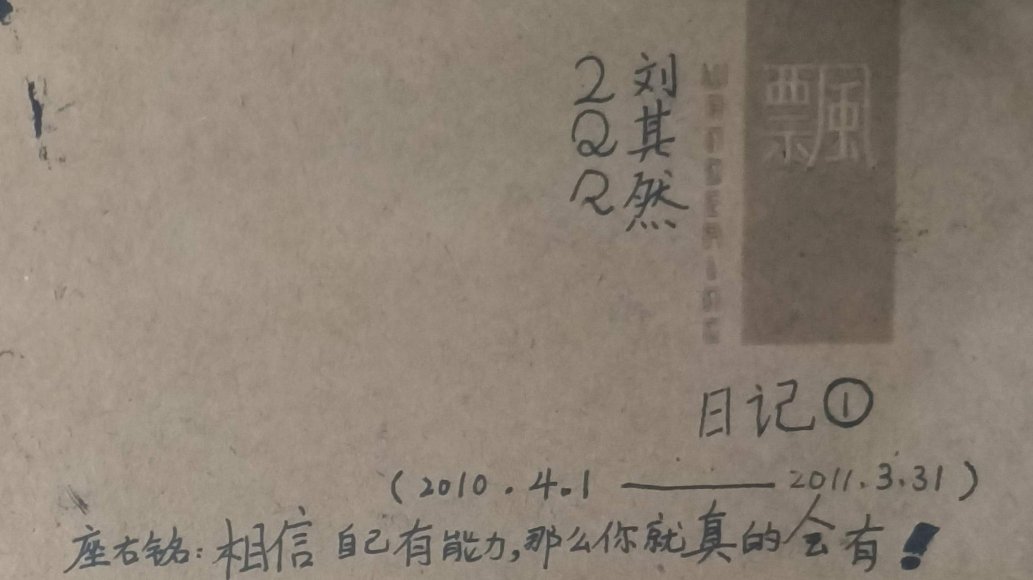 飘風
2 刘
Q 其
R 然
日记①
(2010.4.1 —— 2011.3.31)
座右铭:相信自己有能力,那么你就真的会有!